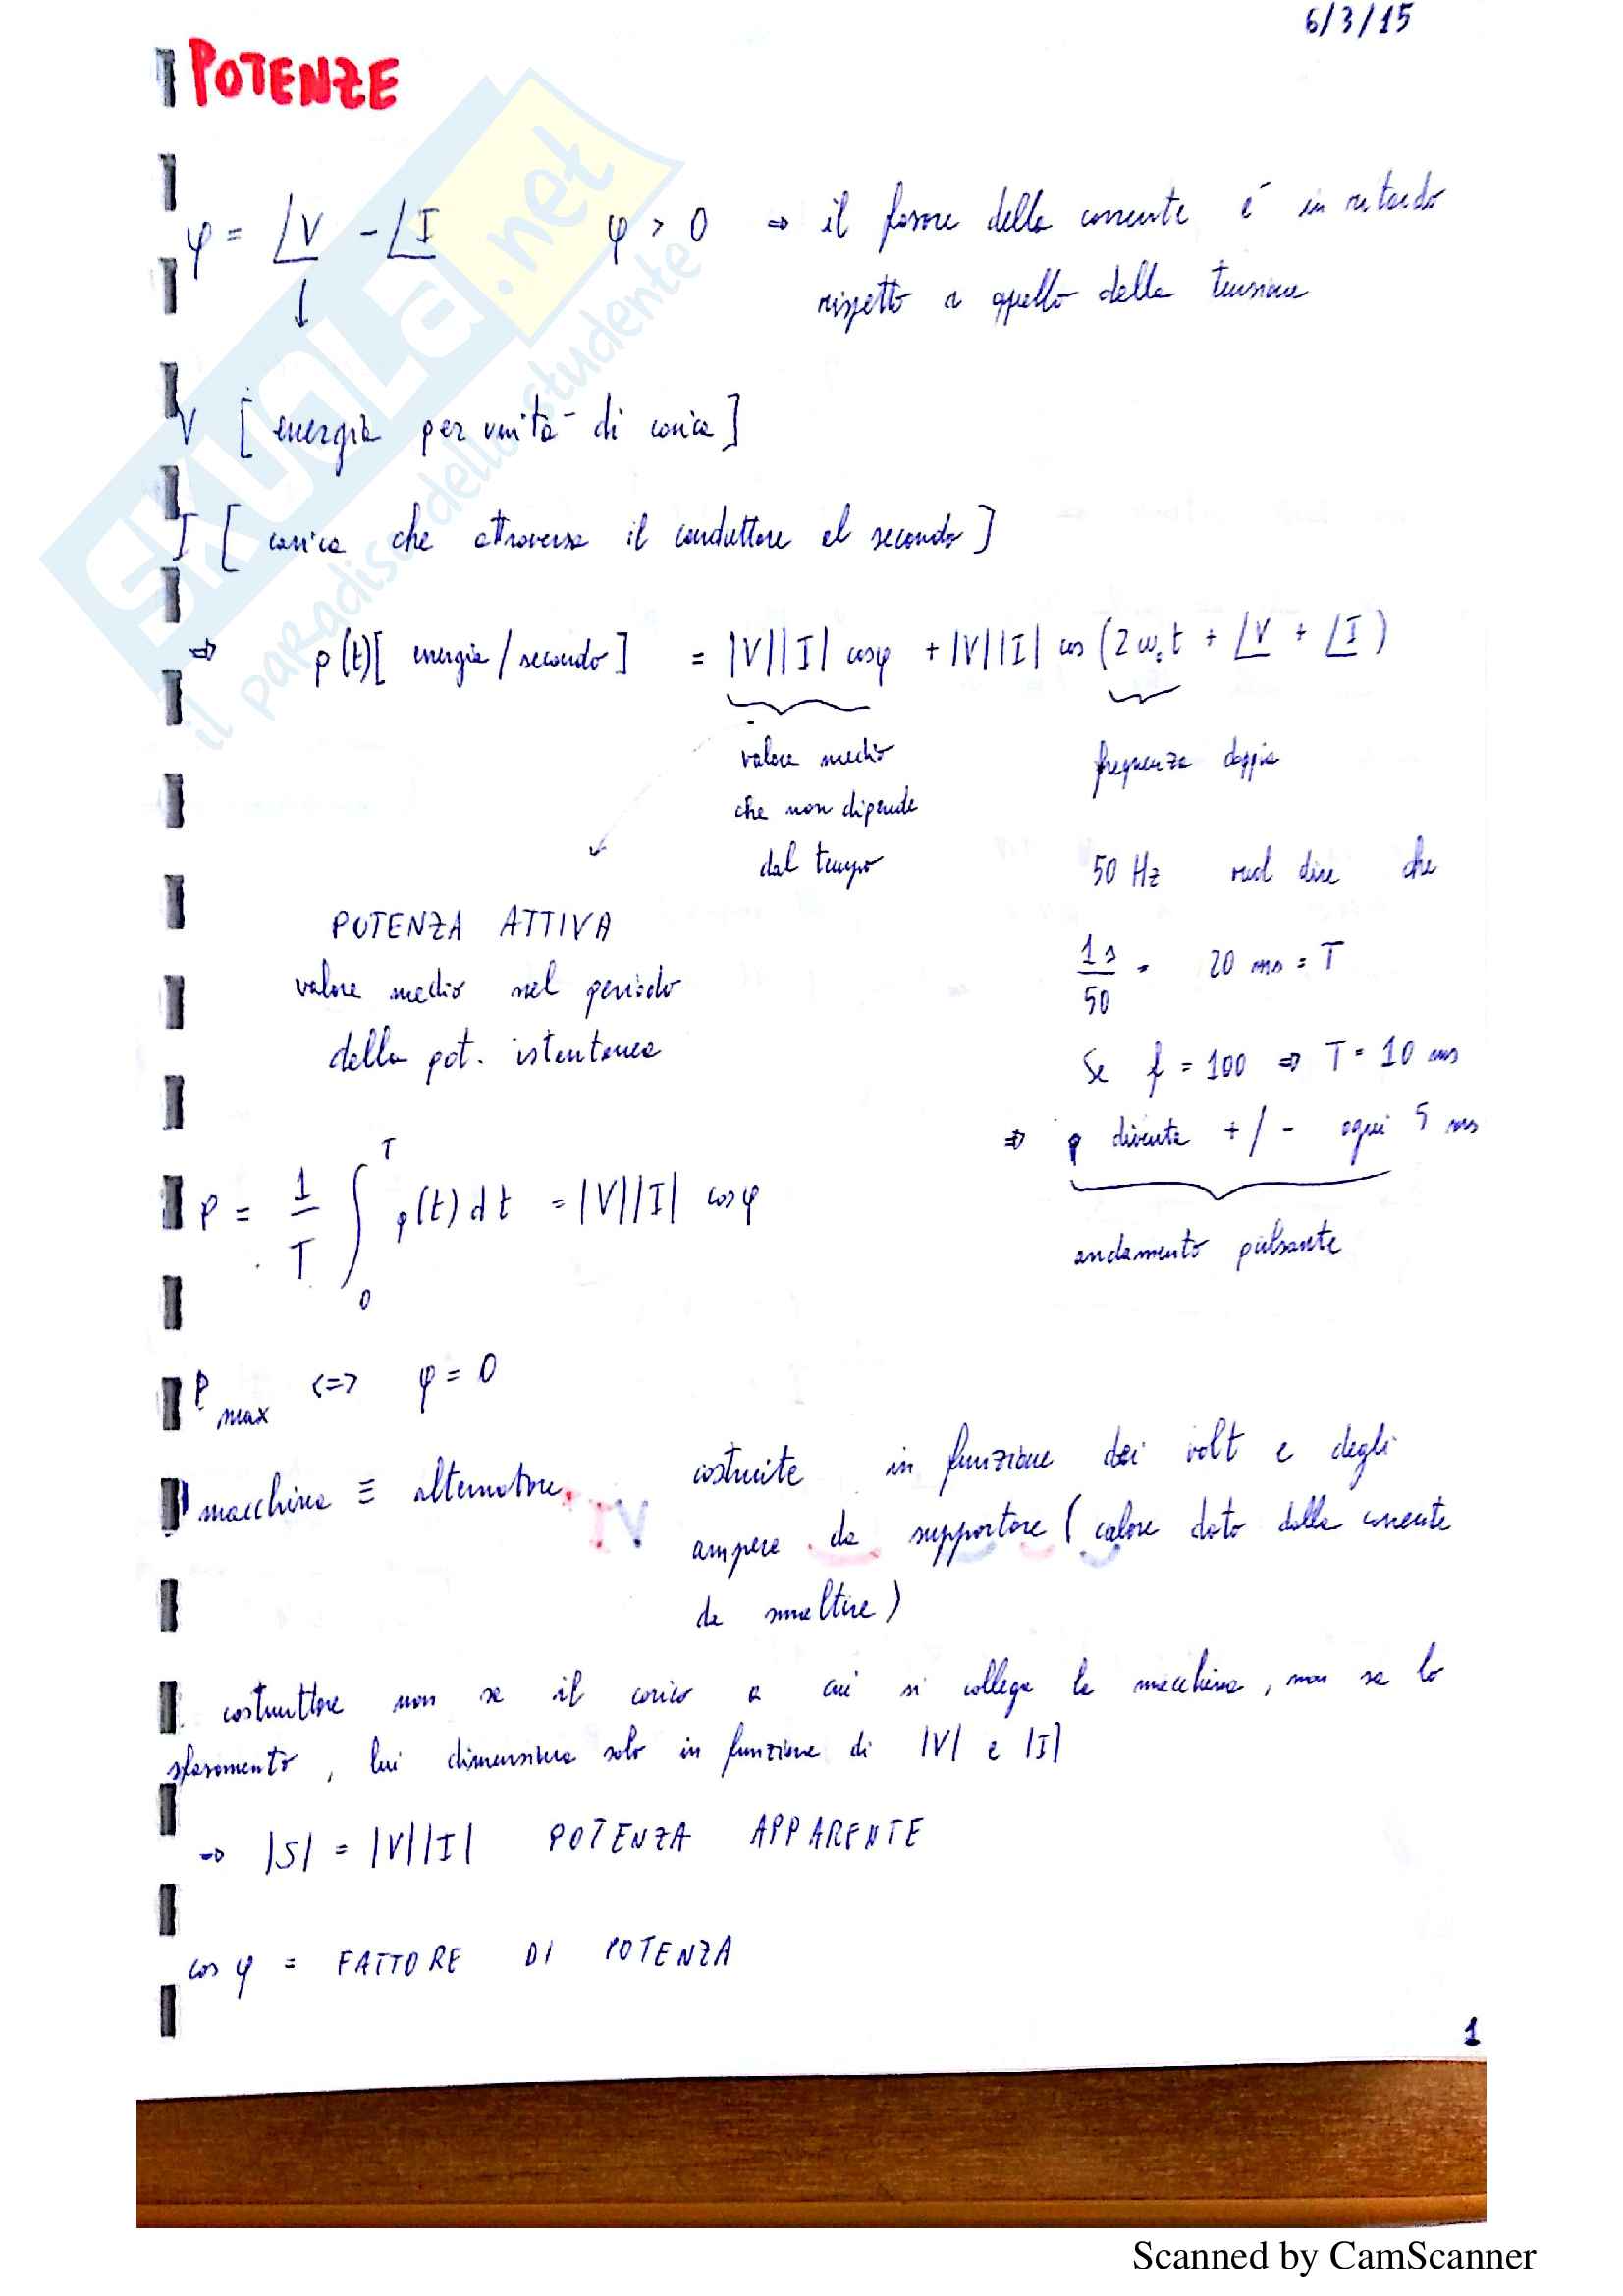 6/3/15
POTENZE
φ = ∠V - ∠I φ > 0 ⇒ il fasore della corrente é in ritardo
rispetto a quello della tensione
V [energia per unità di carica]
I [carica che attraversa il conduttore al secondo]
⇒ p(t)[energia/secondo] = |V||I| cosφ + |V||I| cos (2ω₀t + ∠V + ∠I)
valore medio
che non dipende
dal tempo
frequenza doppia
50 Hz vuol dire che
1s/50 = 20 ms = T
Se f = 100 ⇒ T = 10 ms
⇒ p diventa +/- ogni 5 ms
andamento pulsante
POTENZA ATTIVA
valore medio nel periodo
della pot. istantanea
P = 1/T ∫₀ᵀ p(t) dt = |V||I| cosφ
Pmax <=> φ = 0
macchina ≡ alternatore costruite in funzione dei volt e degli
ampere da supportare (calore dato dalla corrente
da smaltire)
costruttore non sa il carico a cui si collega la macchina, non sa lo
sfasamento, lui dimensiona solo in funzione di |V| e |I|
⇒ |S| = |V||I| POTENZA APPARENTE
cos φ = FATTORE DI POTENZA
1
SKUOLA.net
il paradiso dello studente
Scanned by CamScanner